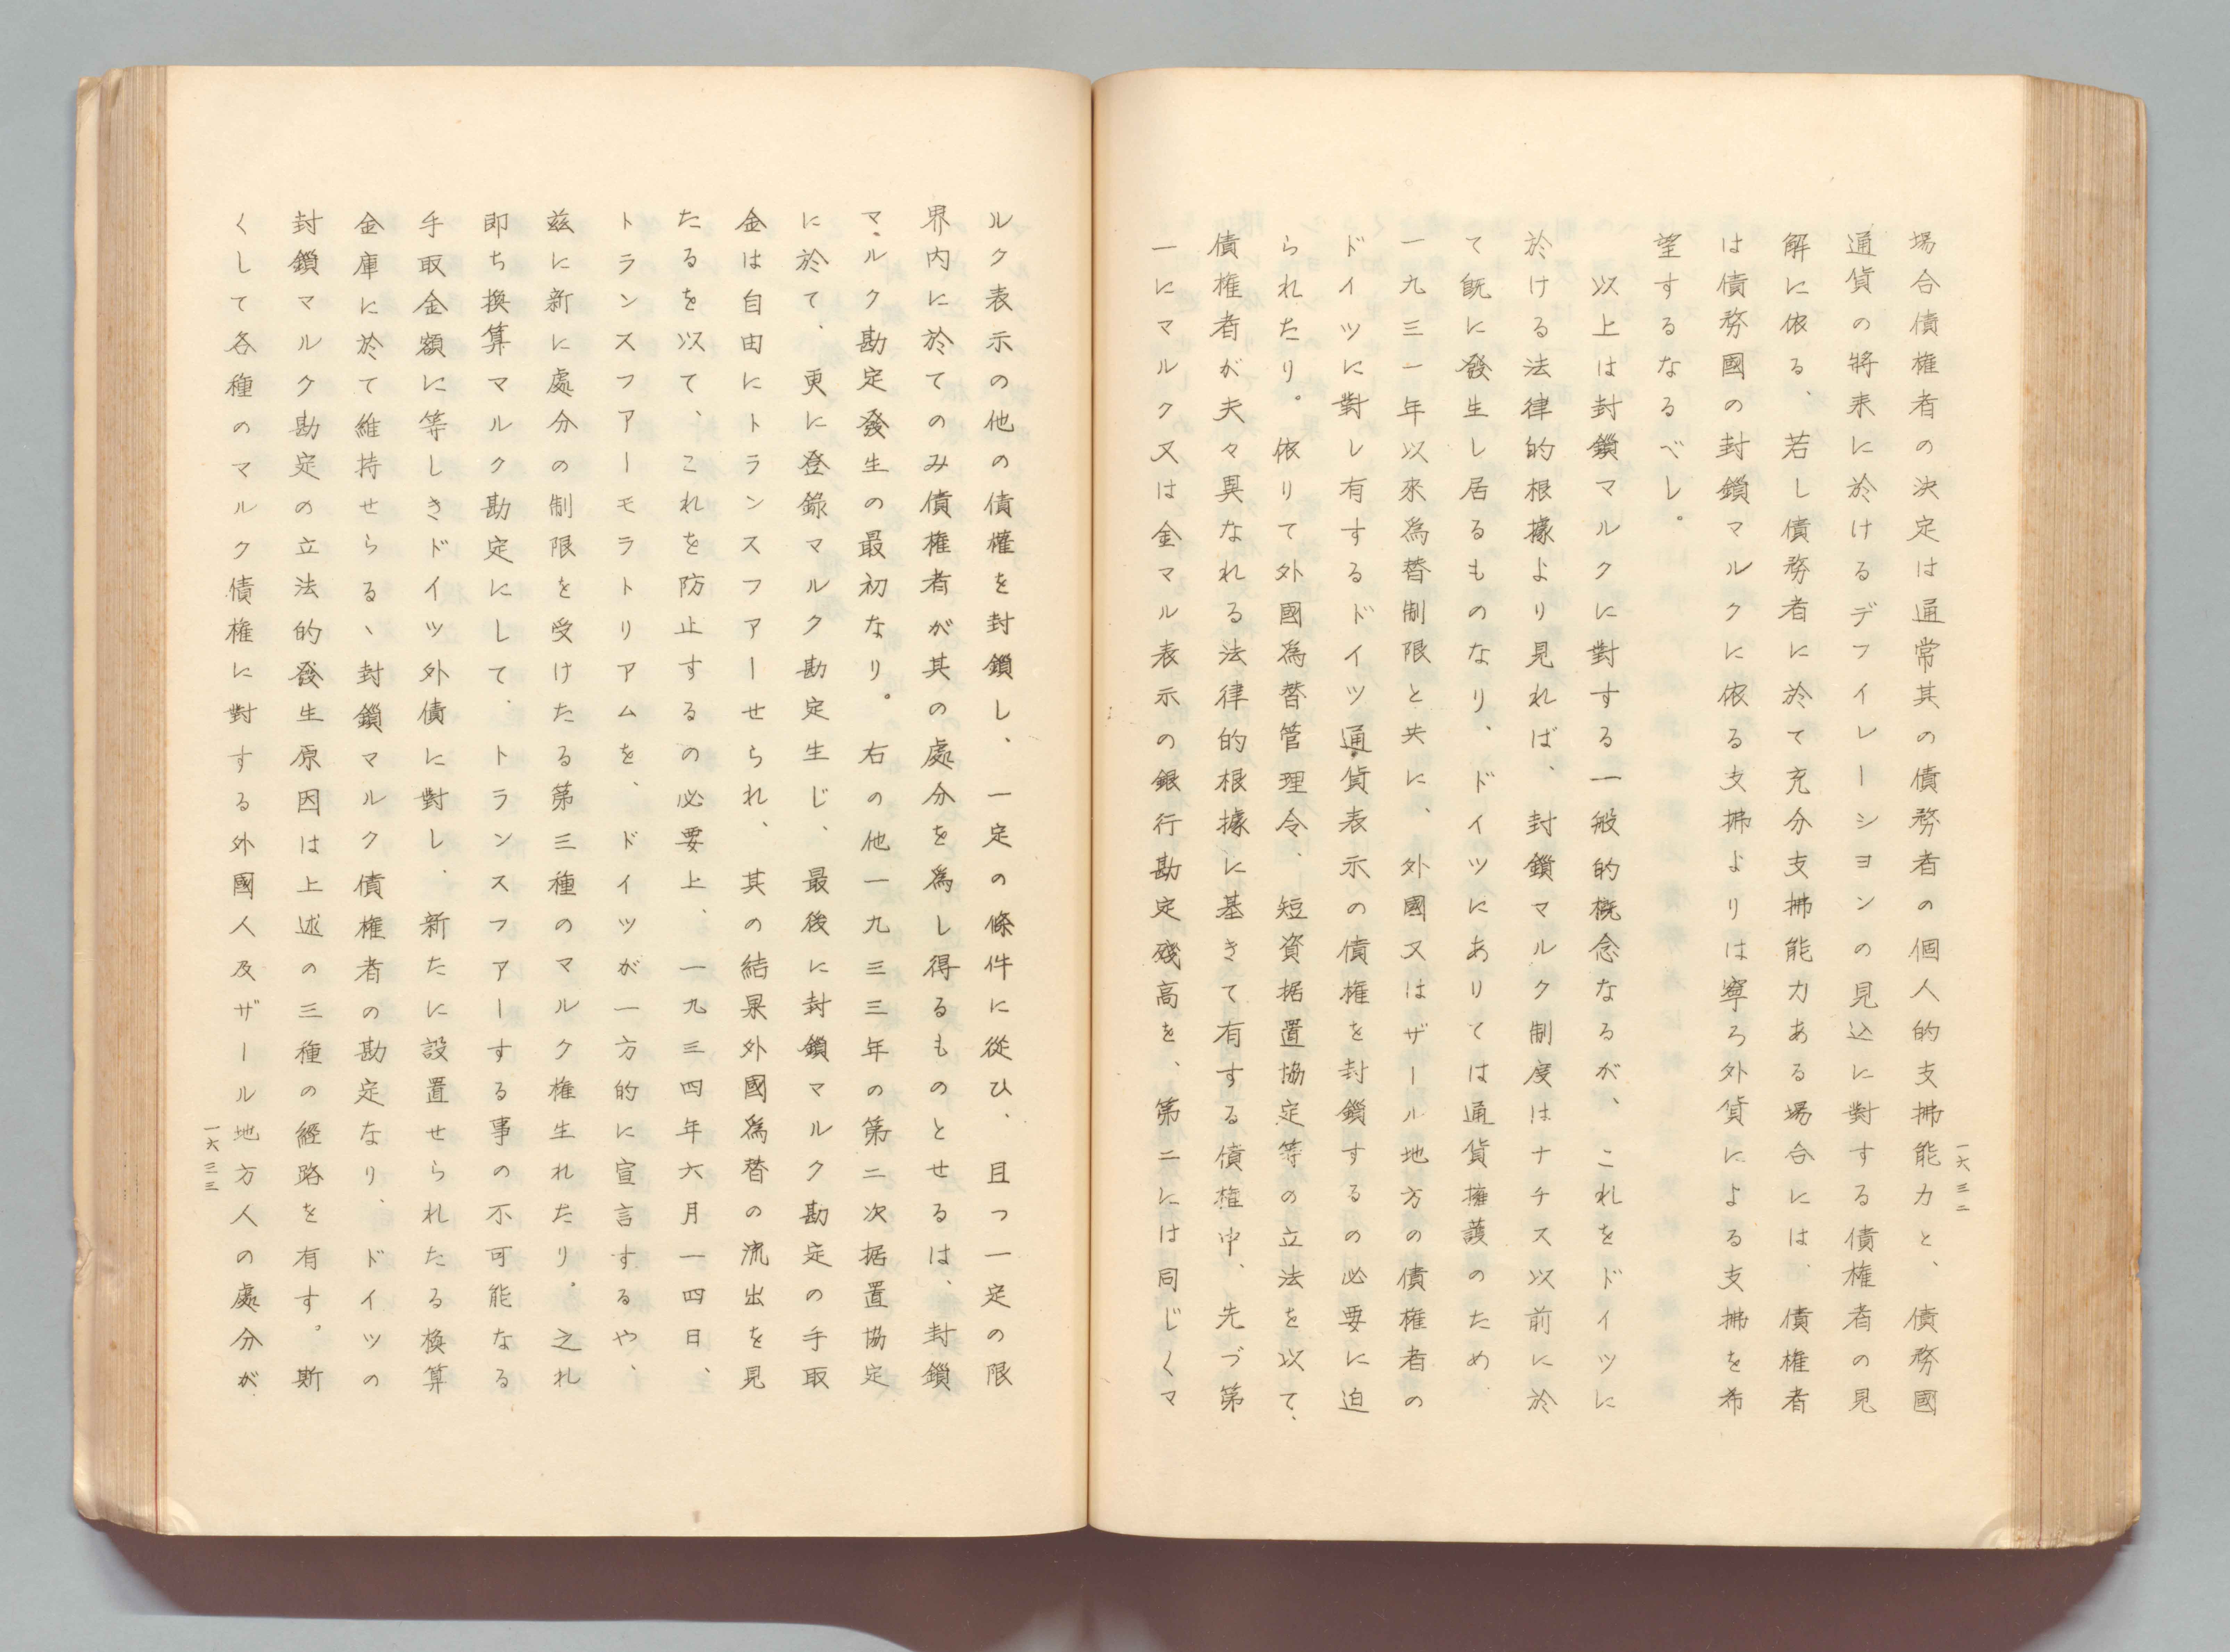 場合債権者の決定は通常其の債務者の個人的支拂能力と、債務國
通貨の將来に於けるデフイレーシヨンの見込に對する債権者の見
解に依る、若し債務者に於て充分支拂能力ある場合には、債権者
は債務國の封鎖マルクに依る支拂よりは寧ろ外貨による支拂を希
望するなるべし。
以上は封鎖マルクに對する一般的概念なるが、これをドイツに
於ける法律的根據より見れば、封鎖マルク制度はナチス以前に於
て既に發生し居るものなり、ドイツにありては通貨擁護のため
一九三一年以來爲替制限と共に、外國又はザール地方の債権者の
ドイツに對し有するドイツ通貨表示の債権を封鎖するの必要に迫
られたり。依りて外國爲替管理令、短資据置協定等の立法を以て、
債権者が夫々異なれる法律的根據に基きて有する債権中、先づ第
一にマルク又は金マルク表示の銀行勘定殘高を、第二には同じくマ
一六三二
ルク表示の他の債權を封鎖し、一定の條件に從ひ、且つ一定の限
界内に於てのみ債権者が其の處分を為し得るものとせるは、封鎖
マルク勘定發生の最初なり。右の他一九三三年の第二次据置協定
に於て、更に登錄マルク勘定生じ、最後に封鎖マルク勘定の手取
金は自由にトランスフアーせられ、其の結果外國爲替の流出を見
たるを以て、これを防止するの必要上、一九三四年六月一四日、
トランスフアーモラトリアムを、ドイツが一方的に宣言するや、
茲に新に處分の制限を受けたる第三種のマルク権生れたり。之れ
即ち換算マルク勘定にして、トランスフアーする事の不可能なる
手取金額に等しきドイツ外債に對し、新たに設置せられたる換算
金庫に於て維持せらるヽ封鎖マルク債権者の勘定なり、ドイツの
封鎖マルク勘定の立法的發生原因は上述の三種の經路を有す。斯
くして各種のマルク債権に對する外國人及ザール地方人の處分が
一六三三